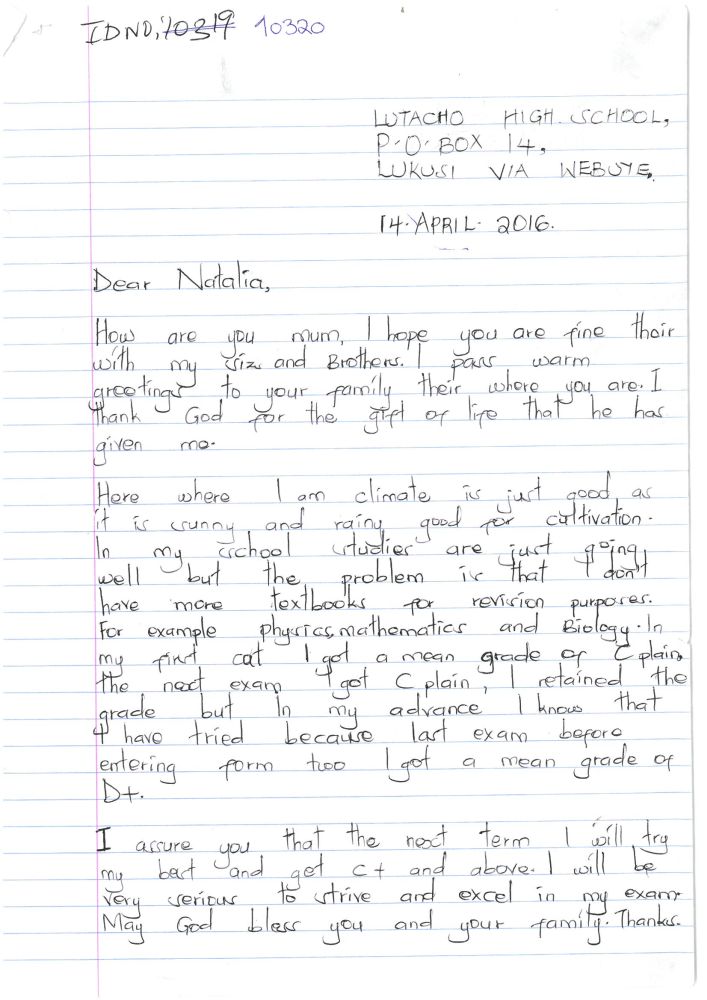 IDNO; 10319 10320
LUTACHO HIGH SCHOOL,
P.O. BOX 14,
LUKUSI VIA WEBUYE,
14. APRIL. 2016.
Dear Natalia,
How are you mum, I hope you are fine their
with my siz and Brothers. I pass warm
greetings to your family their where you are. I
thank God for the gift of life that he has
given me.
Here where I am climate is just good as
it is sunny and rainy good for cultivation.
In my school studies are just going
well but the problem is that I don't
have more textbooks for revision purposes.
For example physics, mathematics and Biology. In
my first cat I got a mean grade of C plain,
the next exam I got C plain, I retained the
grade but in my advance I know that
I have tried because last exam before
entering form two I got a mean grade of
D+.
I assure you that the next term I will try
my best and get c+ and above. I will be
very serious to strive and excel in my exam.
May God bless you and your family. Thanks.